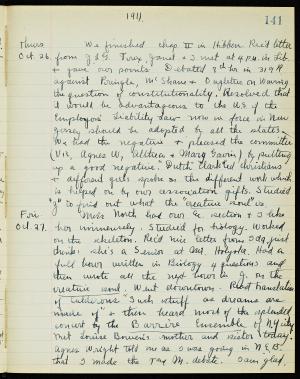 1911.
141
Thurs. We finished chap II in Hibben. Rec'd letter
Oct. 26. from J. & G. Torey, Janet & I met at 4 P.M. in Lib.
& gave our points. Debated 8th hr in 319 A
against Pringle, McShane & Doughteles on waiving
the question of constitutionality. Resolved, that
it would be advantageous to the U.S. if the
Employers' Liability law now in force in New
Jersey should be adopted by all the states.
We had the negative & pleased the committee
(Viz, Agnes W, Althea & Marg Gavin) by putting
up a good negative. Ruth Clark led Christians
& different girls spoke on the different work which
is helped on by our association gifts. Studied
to find out what the "creative soul" is.
Fri. Miss North had our section & I like
Oct. 27. her immensely. Studied for biology. Worked
on the skeleton. Rec'd nice letter from Ida just
thinks she's a Senior at Mt. Holyoke. Had a
full hour written in Biology 4 questions and
then wrote all the next hour in on the
creative soul. Went downtown. Read translation
of Calderon's "Such stuff as dreams are
made of" & then heard most of the splendid
concert by the Barrère Ensemble of N.Y. city
Met Louise Bowen's mother and sister today.
Agnes Wright told me as I was going in N.E.B.
that I made the debate. I am glad.